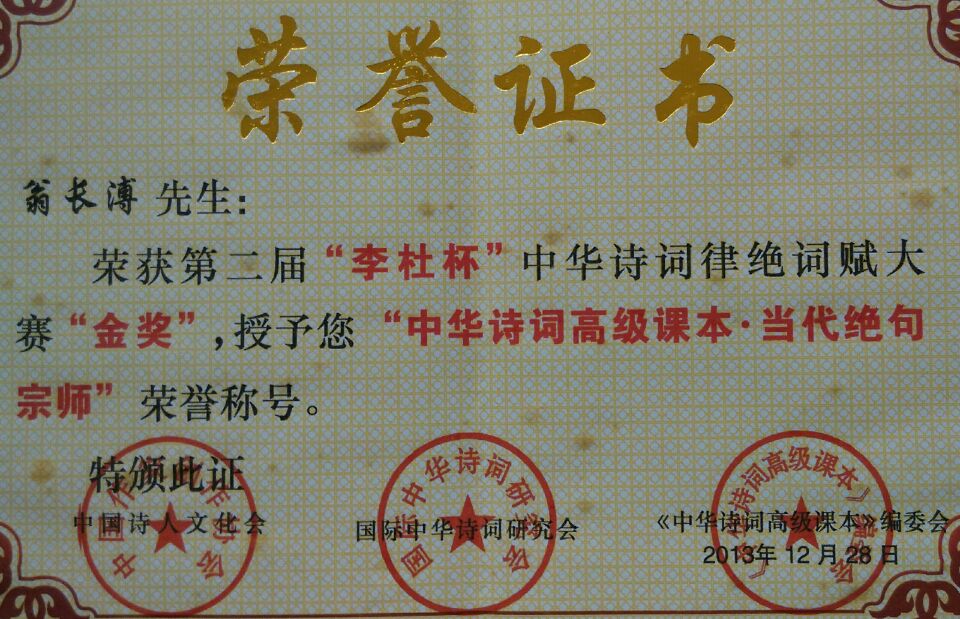 荣誉证书
翁长溥 先生:
荣获第二届“李杜杯”中华诗词律绝词赋大
赛“金奖”,授予您 “中华诗词高级课本·当代绝句
宗师” 荣誉称号。
特颁此证
中国诗人文化会
国际中华诗词研究会
《中华诗词高级课本》编委会
2013年 12 月 28 日
国际中华诗词研究会